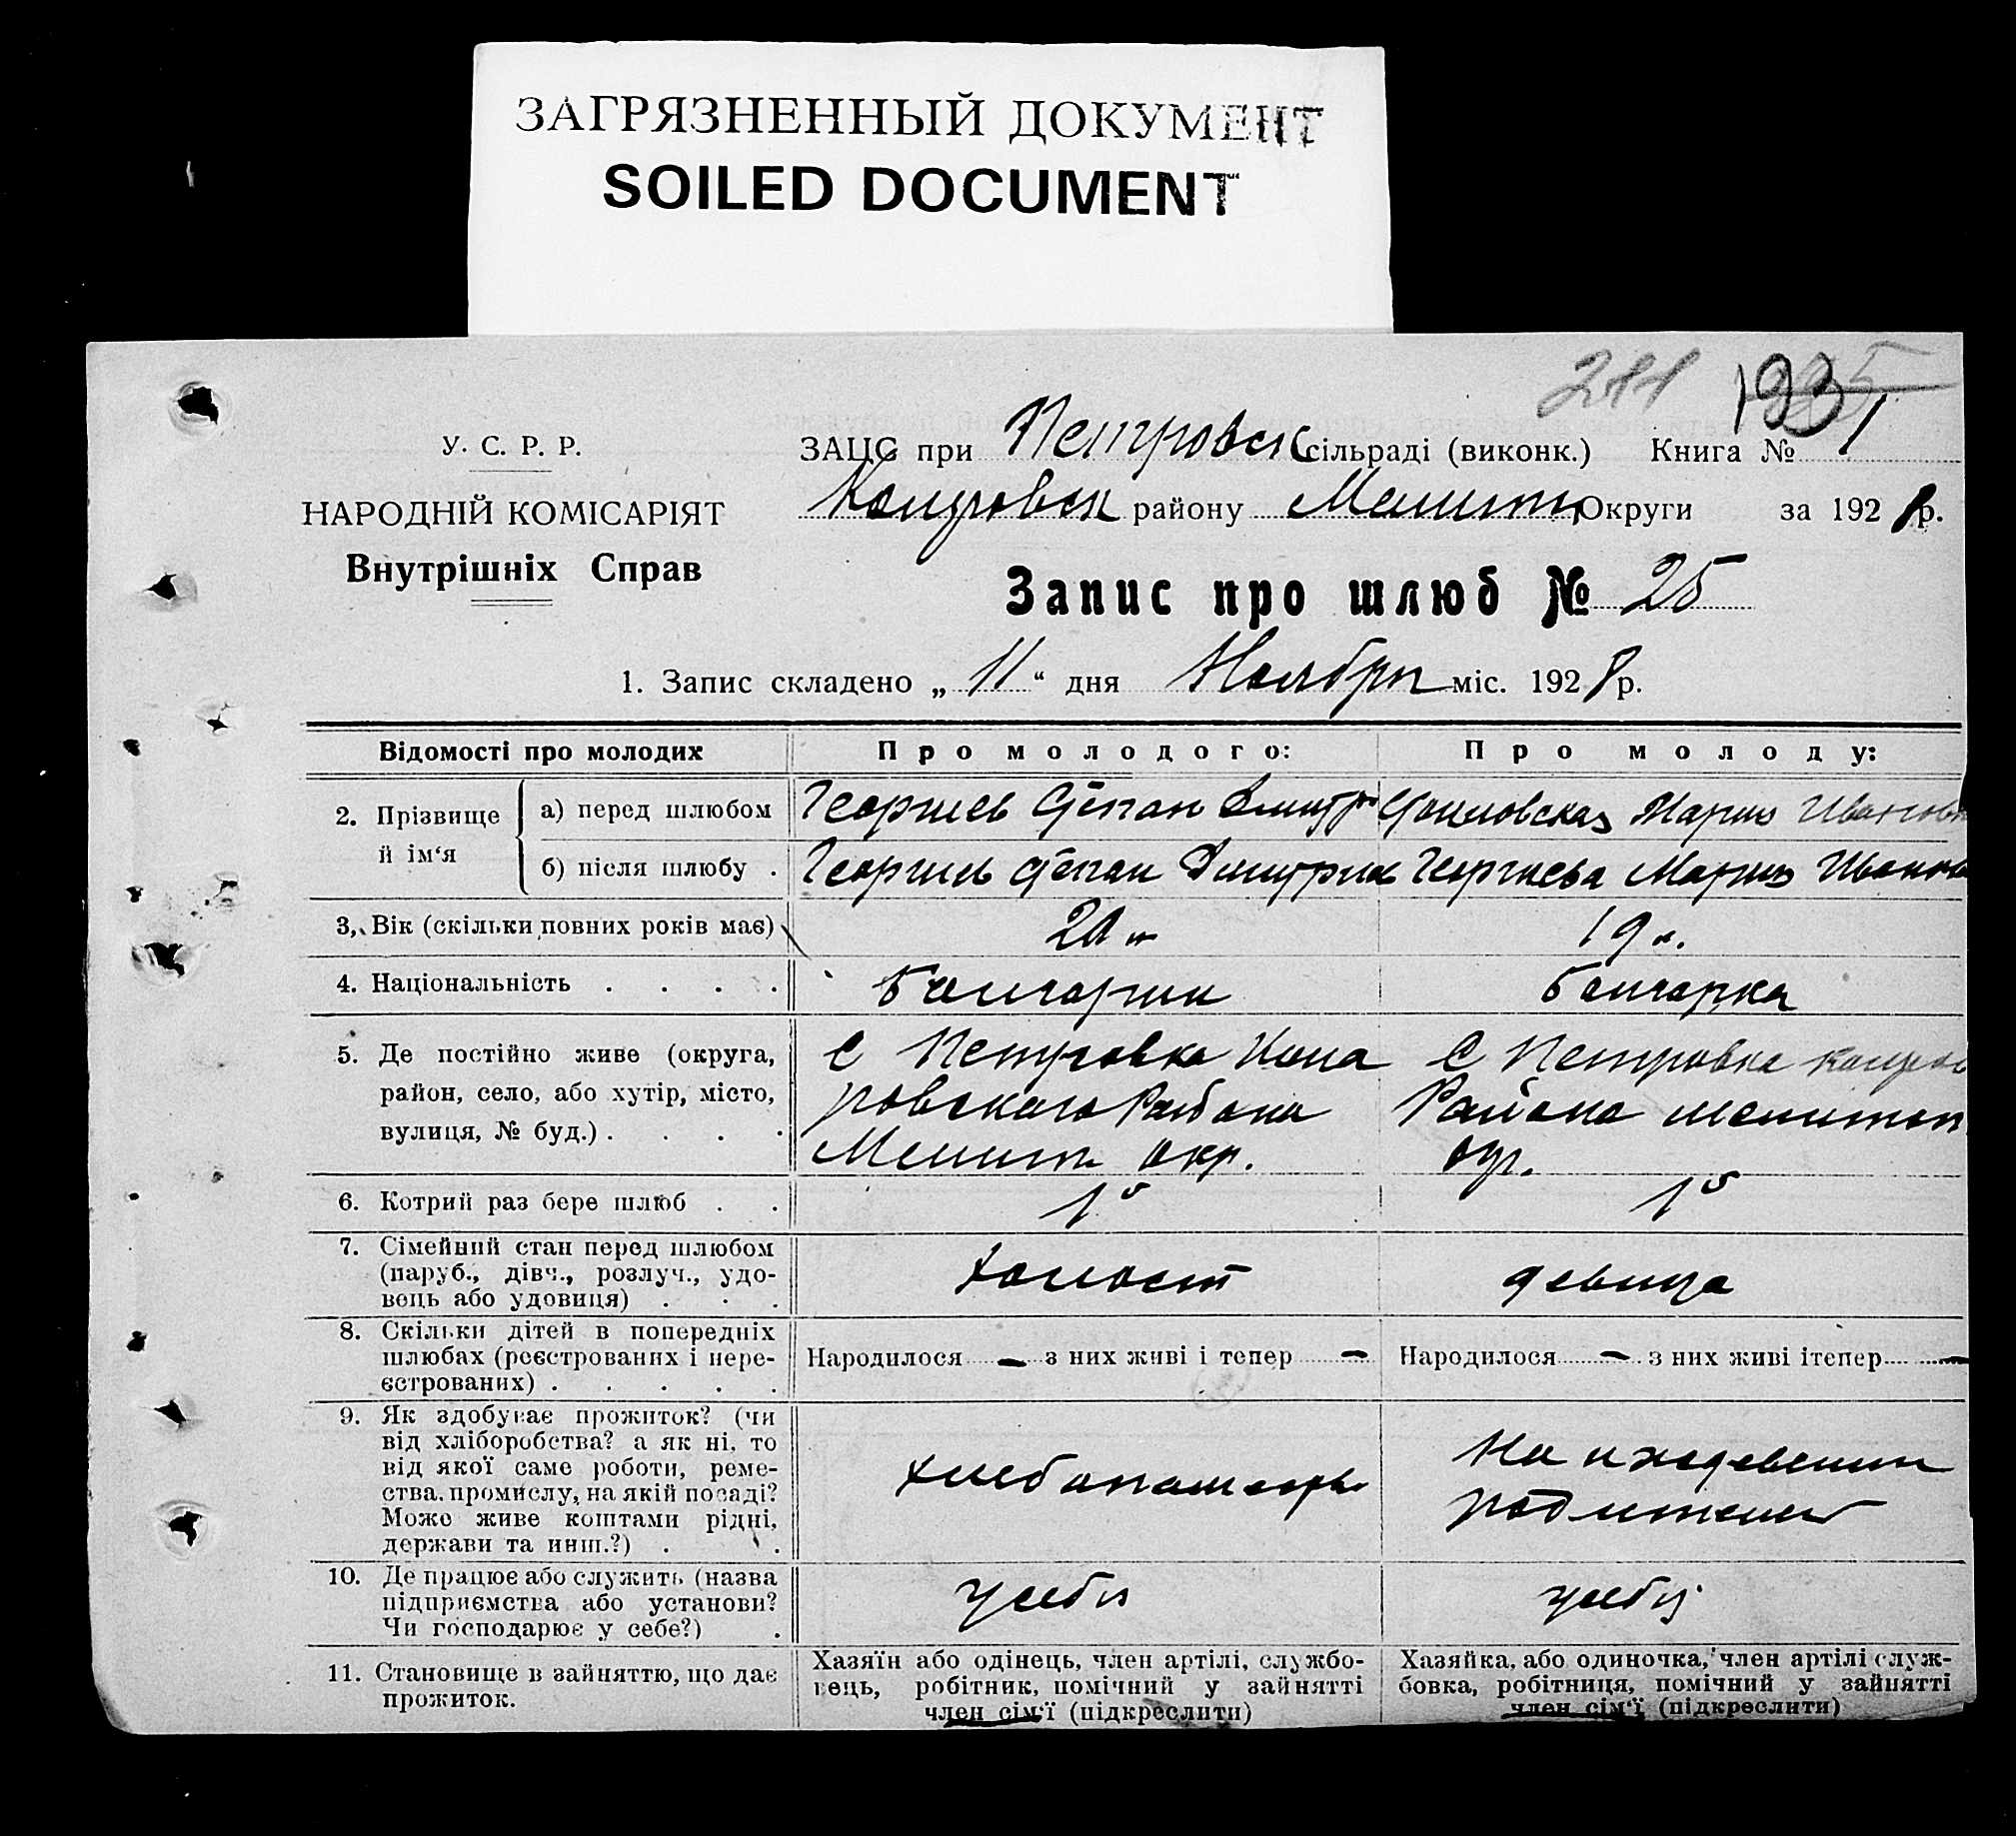 ЗАГРЯЗНЕННЫЙ ДОКУМЕНТ
SOILED DOCUMENT
211 193
У. С. Р. Р.
ЗАЦС при Петровск сільраді (виконк.) Книга № 1
НАРОДНІЙ КОМІСАРІЯТ
району Мелит Округи за 1928 р.
Внутрішніх Справ
Запис про шлюб № 25
1. Запис складено „ 11 “ дня Ноября міс. 1928 р.
Відомості про молодих Про молодого: Про молоду:
2. Прізвище й ім‘я
а) перед шлюбом Георгиев Степан Дмитр Мария Ивановн
б) після шлюбу . Георгиев Степан Дмитриев Георгиева Мария Иванов
3. Вік (скільки повних років має) 19 л.
4. Національність . . . . Болгарин болгарка
5. Де постійно живе (округа, С Петровка С Петровка
район, село, або хутір, місто, ровского Района Района мелитоп
вулиця, № буд.) . . . . Мелит окр. окр.
6. Котрий раз бере шлюб . . 1й 1й
7. Сімейний стан перед шлюбом
(паруб., дівч., розлуч., удо- холост девица
вець або удовиця) . . .
8. Скільки дітей в попередніх
шлюбах (реєстрованих і нере- Народилося — з них живі і тепер — Народилося — з них живі ітепер —
єстрованих) . . . . .
9. Як здобуває прожиток? (чи
від хліборобства? а як ні, то На иждевении
від якої саме роботи, реме- хлебопашеств
ства, промислу, на якій посаді? родителей
Може живе коштами рідні,
держави та инш.?) . .
10. Де працює або служить (назва
підприємства або установи? у себя у себя
Чи господарює у себе?) .
11. Становище в зайняттю, що дає
прожиток.
Хазяїн або одінець, член артілі, службо-
вець, робітник, помічний у зайнятті
член сім‘ї (підкреслити)
Хазяйка, або одиночка, член артілі служ-
бовка, робітниця, помічний у зайнятті
член сім‘ї (підкреслити)